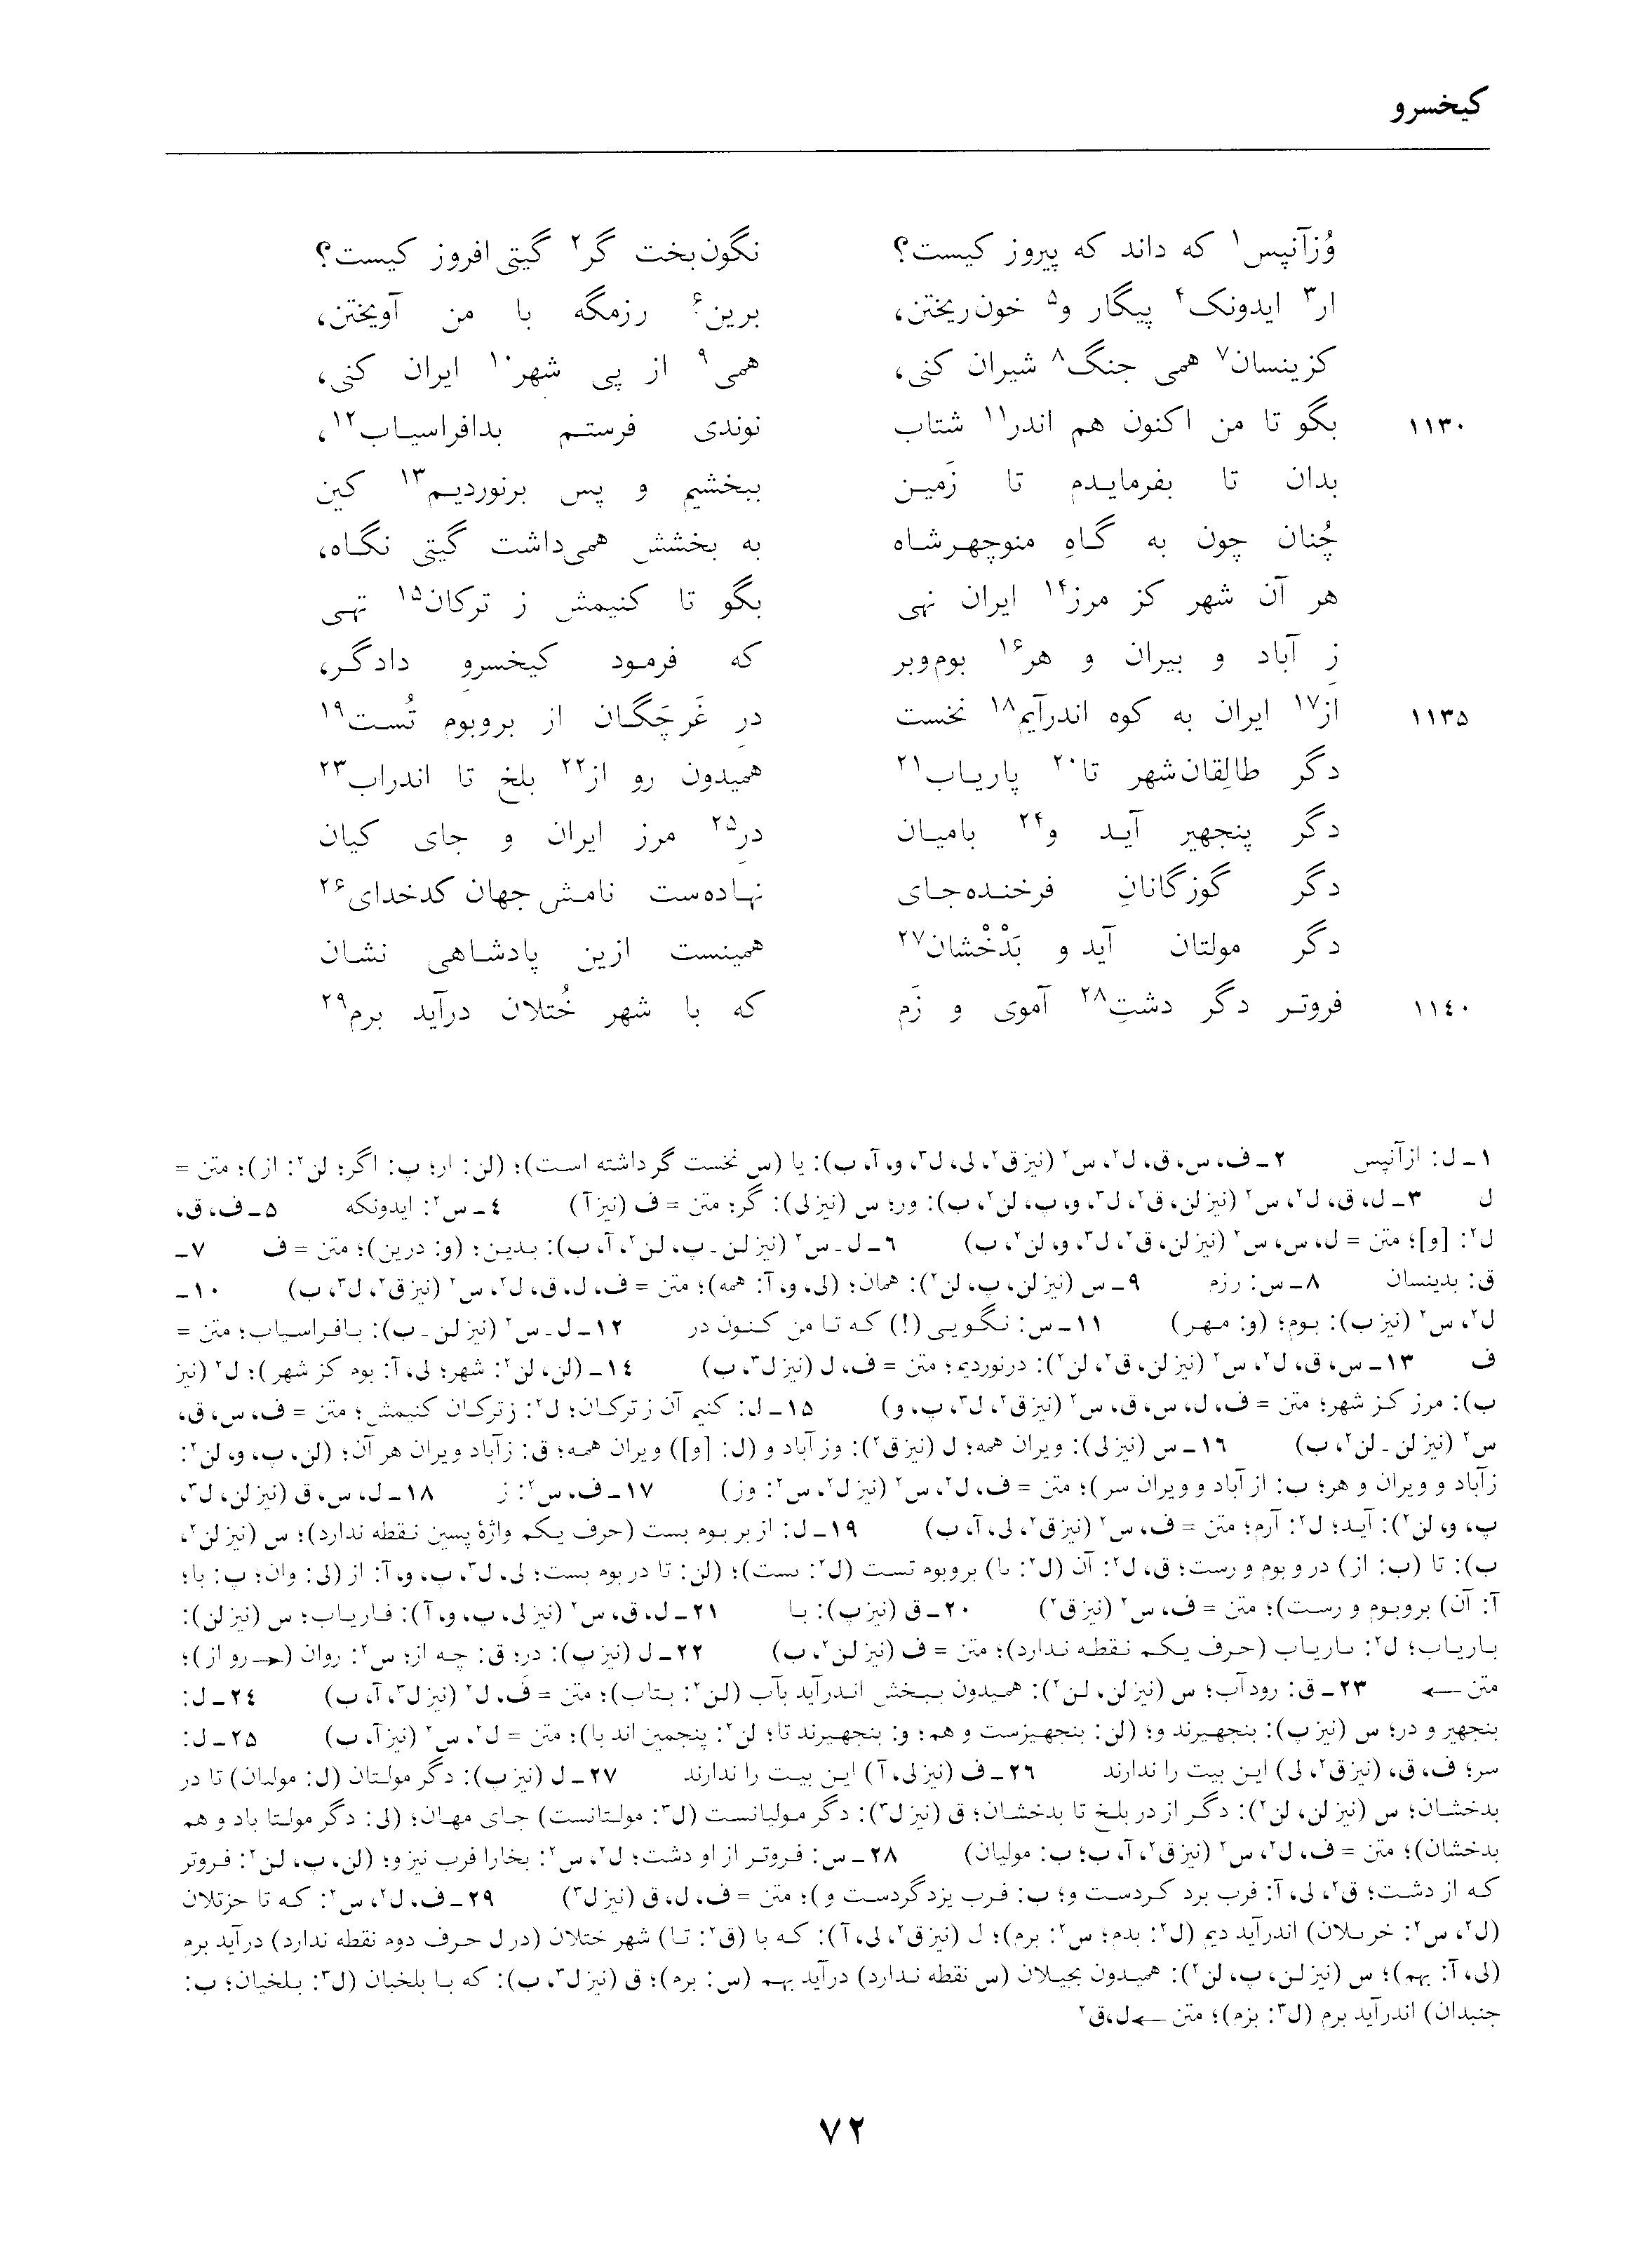 کیخسرو
وُزآنپس۱ که داند که پیروز کیست؟ نگون‌بخت گر۲ گیتی‌افروز کیست؟
ار۳ ایدونک۴ پیگار و۵ خون‌ریختن، برین۶ رزمگه با من آویختن،
کزینسان۷ همی جنگ۸ شیران کنی، همی۹ از پی شهر۱۰ ایران کنی،
۱۱۳۰ بگو تا من اکنون هم اندر۱۱ شتاب نوندی فرستم بدافراسیاب۱۲،
بدان تا بفرمایدم تا زَمین ببخشیم و پس برنوردیم۱۳ کین
چُنان چون به گاهِ منوچهرشاه به بخشش همی‌داشت گیتی نگاه،
هر آن شهر کز مرز۱۴ ایران نهی بگو تا کنیمش ز ترکان۱۵ تهی
زِ آباد و بیران و هر۱۶ بوم‌وبر که فرمود کیخسروِ دادگر،
۱۱۳۵ از۱۷ ایران به کوه اندرآیم۱۸ نخست درِ غَرچَگان از بروبوم تُست۱۹
دگر طالِقان‌شهر تا۲۰ پاریاب۲۱ همیدون رو از۲۲ بلخ تا اندراب۲۳
دگر پنجهیر آید و۲۴ بامیان درِ۲۵ مرز ایران و جای کیان
دگر گوزگانانِ فرخنده‌جای نهاده‌ست نامش جهان کدخدای۲۶
دگر مولتان آید و بَدْخْشان۲۷ همینست ازین پادشاهی نشان
۱۱٤۰ فروتر دگر دشتِ۲۸ آموی و زَم که با شهر خُتلان درآید برم۲۹
۱ـ ل: ازآنپس ۲ـ ف، س، ق، ل۲، س۲ (نیزق۲، لی، ل۳، و، آ، ب): یا (س نخست گر داشته است)؛ (لن: ار؛ پ: اگر؛ لن۲: از)؛ متن =
ل ۳ـ ل، ق، ل۲، س۲ (نیزلن، ق۲، ل۳، و، پ، لن۲، ب): ور؛ س (نیزلی): گر؛ متن = ف (نیزآ) ٤ـ س۲: ایدونکه ۵ـ ف، ق،
ل۲: [و]؛ متن = ل، س، س۲ (نیزلن، ق۲، ل۳، و، لن۲، ب) ٦ـ ل ـ س۲ (نیزلن ـ پ، لن۲، آ، ب): بدین؛ (و: درین)؛ متن = ف ۷ـ
ق: بدینسان ۸ـ س: رزم ۹ـ س (نیزلن، پ، لن۲): همان؛ (لی، و، آ: همه)؛ متن = ف، ل، ق، ل۲، س۲ (نیزق۲، ل۳، ب) ۱۰ـ
ل۲، س۲ (نیزب): بوم؛ (و: مهر) ۱۱ـ س: نگویی (!) که تا من کنون در ۱۲ـ ل ـ س۲ (نیزلن ـ ب): بافراسیاب؛ متن =
ف ۱۳ـ س، ق، ل۲، س۲ (نیزلن، ق۲، لن۲): درنوردیم؛ متن = ف، ل (نیزل۳، ب) ۱٤ـ (لن، لن۲: شهر؛ لی، آ: بوم کز شهر)؛ ل۲ (نیز
ب): مرز کز شهر؛ متن = ف، ل، س، ق، س۲ (نیزق۲، ل۳، پ، و) ۱۵ـ ل: کنیم آن ز ترکان؛ ل۲: ز ترکان کنیمش؛ متن = ف، س، ق،
س۲ (نیزلن ـ لن۲، ب) ۱٦ـ س (نیزلی): ویران همه؛ ل (نیزق۲): وز آباد و (ل: [و]) ویران همه؛ ق: زآباد ویران هر آن؛ (لن، پ، و، لن۲:
زآباد و ویران و هر؛ ب: از آباد و ویران سر)؛ متن = ف، ل۲، س۲ (نیزل۲، س۲: وز) ۱۷ـ ف، س۲: ز ۱۸ـ ل، س، ق (نیزلن، ل۳،
پ، و، لن۲): آید؛ ل۲: آرم؛ متن = ف، س۲ (نیزق۲، لی، آ، ب) ۱۹ـ ل: از بر بوم بست (حرف یکم واژهٔ پسین نقطه ندارد)؛ س (نیزلن۲،
ب): تا (ب: از) در و بوم و رست؛ ق، ل۲: آن (ل۲: ىا) بروبوم تست (ل۲: ىست)؛ (لن: تا در بوم بست؛ لی، ل۳، پ، و، آ: از (لی: وان؛ پ: با؛
آ: آن) بروبوم و رست)؛ متن = ف، س۲ (نیزق۲) ۲۰ـ ق (نیزپ): با ۲۱ـ ل، ق، س۲ (نیزلی، پ، و، آ): فاریاب؛ س (نیزلن):
باریاب؛ ل۲: ىاریاب (حرف یکم نقطه ندارد)؛ متن = ف (نیزلن۲، ب) ۲۲ـ ل (نیزپ): در؛ ق: چه از؛ س۲: روان (←رو از)؛
متن ← ۲۳ـ ق: رودآب؛ س (نیزلن، لن۲): همیدون ببخش اندرآید بآب (لن۲: بتاب)؛ متن = ف، ل۲ (نیزل۳، آ، ب) ۲٤ـ ل:
بنجهیر و در؛ س (نیزپ): بنجهیرند و؛ (لن: بنجهیزست و هم؛ و: بنجهیرند تا؛ لن۲: پنجمین اند با)؛ متن = ل۲، س۲ (نیزآ، ب) ۲۵ـ ل:
سر؛ ف، ق، (نیزق۲، لی) این بیت را ندارند ۲٦ـ ف (نیزلی، آ) این بیت را ندارند ۲۷ـ ل (نیزپ): دگر مولتان (ل: مولىان) تا در
بدخشان؛ س (نیزلن، لن۲): دگر از در بلخ تا بدخشان؛ ق (نیزل۳): دگر مولیانست (ل۳: مولتانست) جای مهان؛ (لی: دگر مولتا باد و هم
بدخشان)؛ متن = ف، ل۲، س۲ (نیزق۲، آ، ب؛ ب: مولیان) ۲۸ـ س: فروتر از او دشت؛ ل۲، س۲: بخارا فرب نیز و؛ (لن، پ، لن۲: فروتر
که از دشت؛ ق۲، لی، آ: فرب برد کردست و؛ ب: فرب یزدگردست و)؛ متن = ف، ل، ق (نیزل۳) ۲۹ـ ف، ل۲، س۲: که تا حزتلان
(ل۲، س۲: خرىلان) اندرآید دیم (ل۲: بدم؛ س۲: برم)؛ ل (نیزق۲، لی، آ): که با (ق۲: تا) شهر ختلان (در ل حرف دوم نقطه ندارد) درآید برم
(لی، آ: بهم)؛ س (نیزلن، پ، لن۲): همیدون بجیلان (س نقطه ندارد) درآید بهم (س: برم)؛ ق (نیزل۳، ب): که با بلخیان (ل۳: بلخیان؛ ب:
جنبدان) اندرآید برم (ل۳: بزم)؛ متن ←ل، ق۲
۷۲